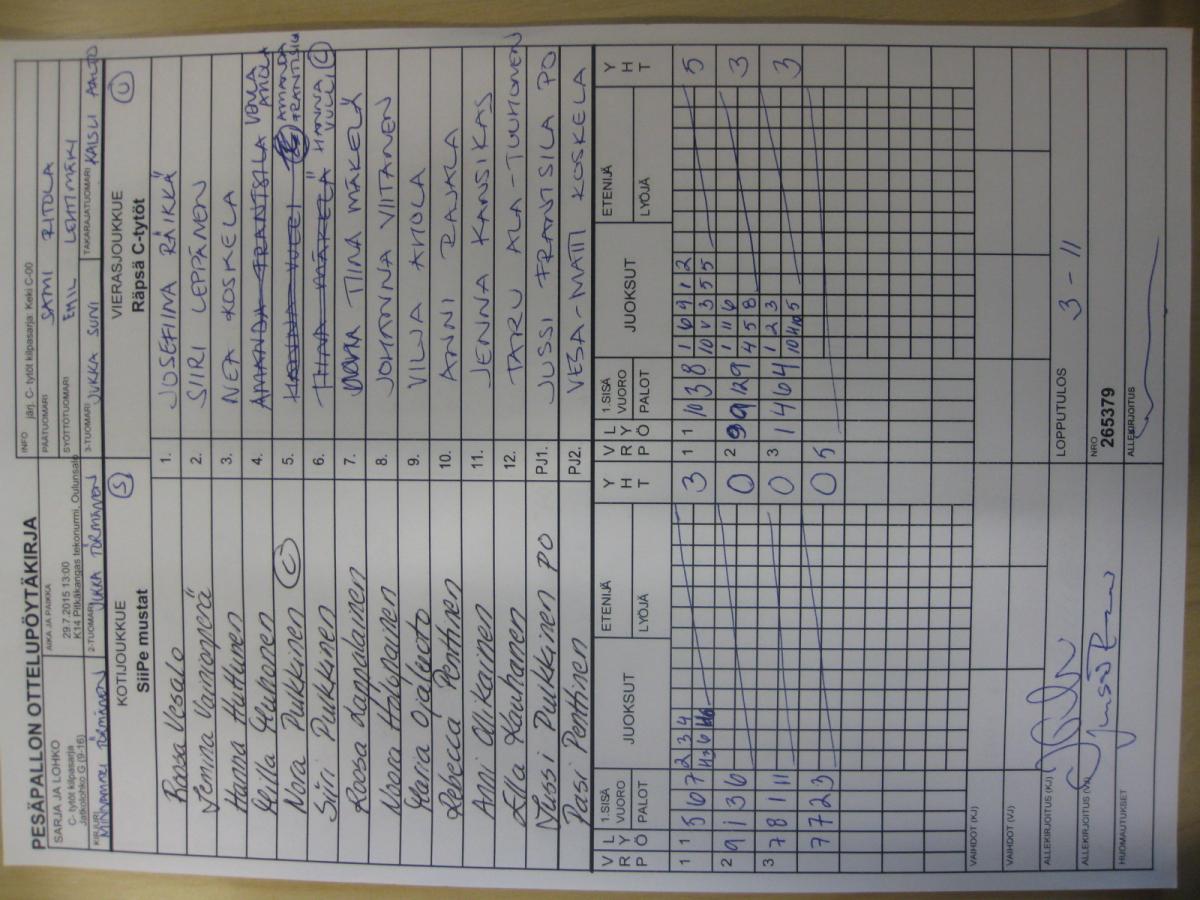 PESÄPALLON OTTELUPÖYTÄKIRJA
SARJA JA LOHKO
C- tytöt kilpasarja
Jatkolohko G (9-16)
AIKA JA PAIKKA
29.7.2015 13:00
K14 Pitkäkangas tekonurmi, Oulunsalo
INFO järj. C- tytöt kilpasarja: Keki C-00
PÄÄTUOMARI SAMI RITOLA
SYÖTTÖTUOMARI EMIL LEHTIMÄKI
KIRJURI TÖRMÄNEN
2-TUOMARI JUKKA TÖRMÄNEN
3-TUOMARI JUKKA SUNI
TAKARAJATUOMARI KAISU AALTO
KOTIJOUKKUE
SiiPe mustat
S
VIERASJOUKKUE
Räpsä C-tytöt
U
Roosa Vesalo 1. JOSEFIINA RÄIKKÄ
Jemina Vainionperä 2. SIIRI LEPPÄNEN
Hanna Huttunen 3. NEA KOSKELA
Milla 4. AMANDA FRANTSILA VENLA AHOLA
Nora Pulkkinen C 5. HANNA VULLI AMANDA FRANTSILA
Siiri Pulkkinen 6. TIINA MÄKELÄ HANNA VULLI C
Roosa Lappalainen 7. TIINA MÄKELÄ
Noora 8. JOHANNA VIITANEN
Maria Ojalehto 9. VILJA AHOLA
Rebecca Penttinen 10. ANNI RAJALA
Anni Ollikainen 11. JENNA KANSIKAS
Kauhanen 12. TARU ALA-TUUHONEN
Jussi Pulkkinen PO PJ1. JUSSI FRANTSILA PO
Pasi Penttinen PJ2. VESA-MATTI KOSKELA
V R P L Y Ö 1.SISÄ VUORO PALOT JUOKSUT ETENIJÄ LYÖJÄ Y H T
V R P L Y Ö 1.SISÄ VUORO PALOT JUOKSUT ETENIJÄ LYÖJÄ Y H T
1 1 5 6 7 2 3 4 3
1 1 10 3 8 1 6 9 1 2 5
10 V 3 5 5
2 9 1 13 6 0
2 9 9 12 9 1 11 6 3
4 5 8
3 7 8 1 11 0
3 1 4 6 4 1 2 3 3
7 7 2 3 0 5
VAIHDOT (KJ)
VAIHDOT (VJ)
ALLEKIRJOITUS (KJ)
ALLEKIRJOITUS (VJ)
HUOMAUTUKSET
LOPPUTULOS 3 - 11
NRO
265379
ALLEKIRJOITUS